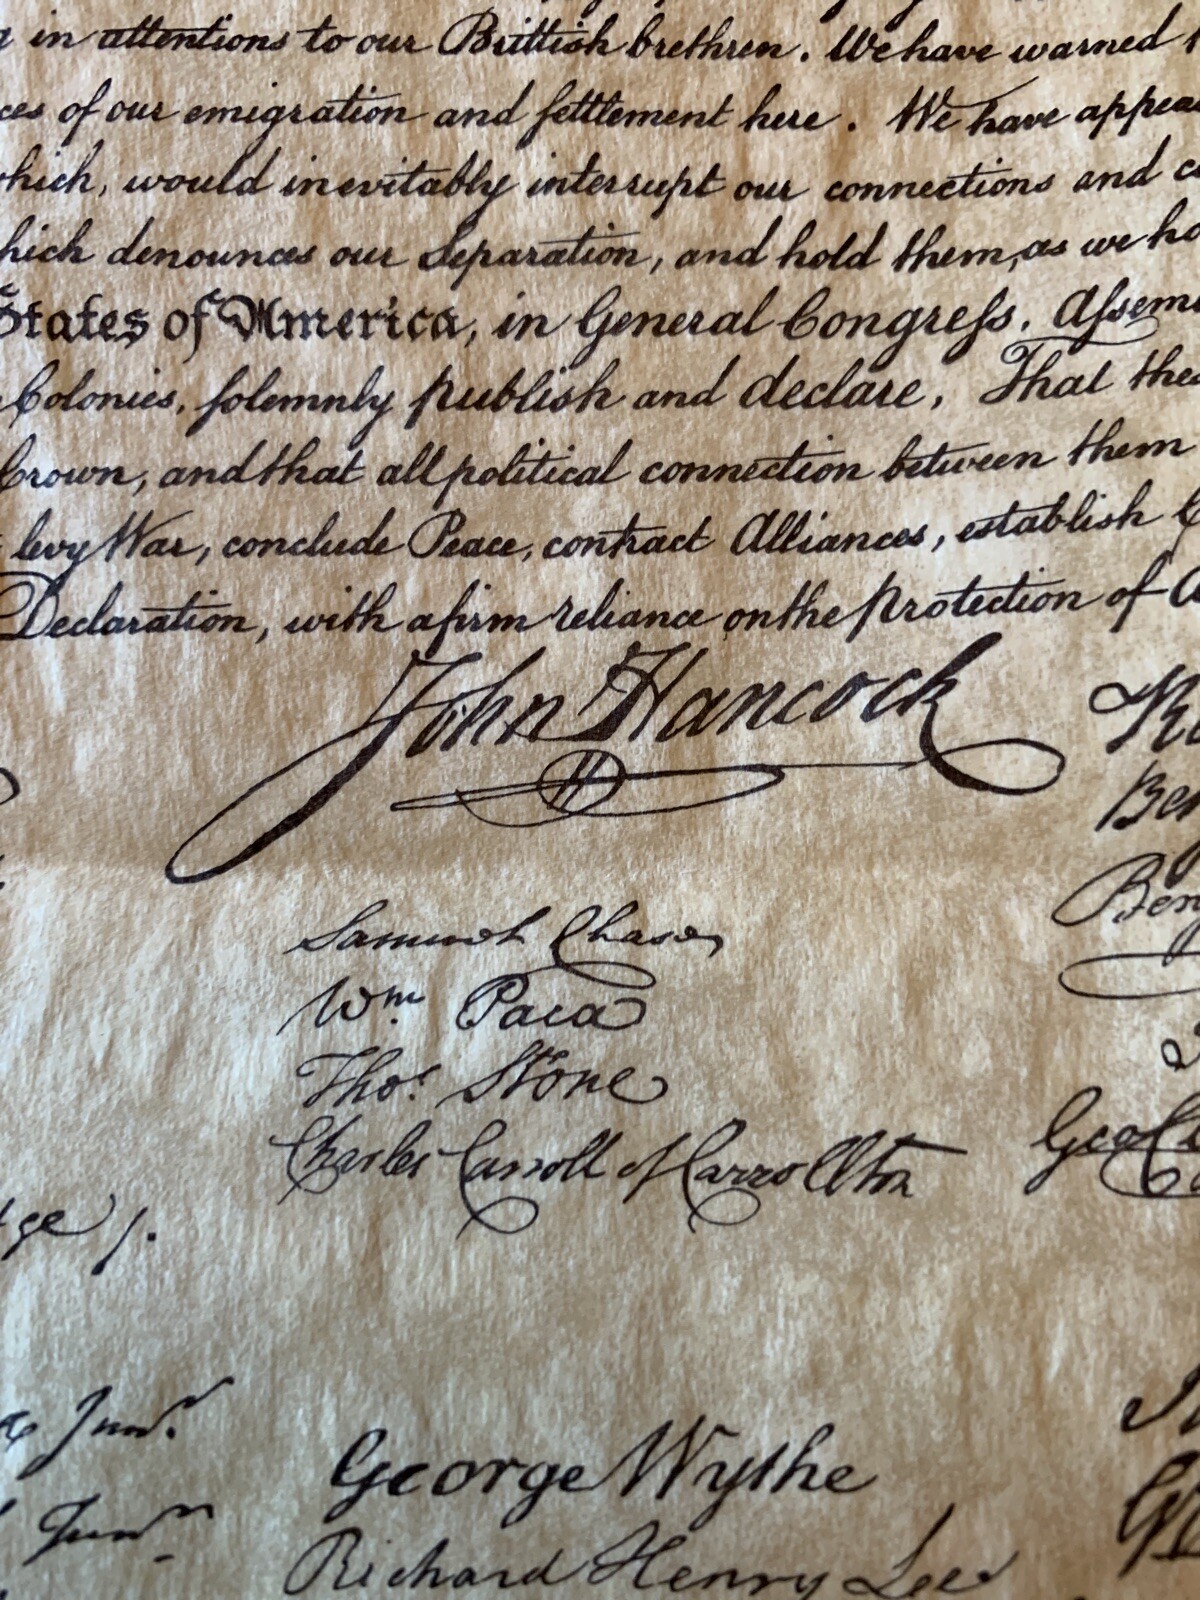 in attentions to our Brittish brethren. We have warned
of our emigration and settlement here. We have appea
hich, would inevitably interrupt our connections and co
hich denounces our Separation, and hold them, as we ho
States of America, in General Congress, Assem
Colonies, solemnly publish and declare, That the
Crown, and that all political connection between them
levy War, conclude Peace, contract Alliances, establish C
Declaration, with a firm reliance on the protection of
John Hancock
Ben
Samuel Chase
Benj
Wm. Paca
Thos. Stone
Charles Carroll of Carrollton
Geo
ge
Junr.
George Wythe
Junr.
Richard Henry Lee